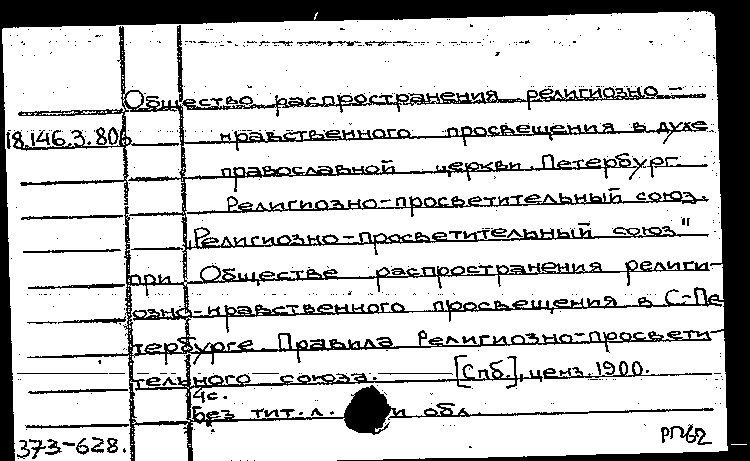 Общество распространения религиозно-
18.146.3.806 нравственного просвещения в духе
православной церкви. Петербург.
Религиозно-просветительный союз.
„Религиозно-просветительный союз"
при Обществе распространения религи-
озно-нравственного просвещения в С-Пе
тербурге Правила Религиозно-просвети-
тельного союза. [Спб.], ценз. 1900.
4с.
Без тит. л. и обл.
373-628.